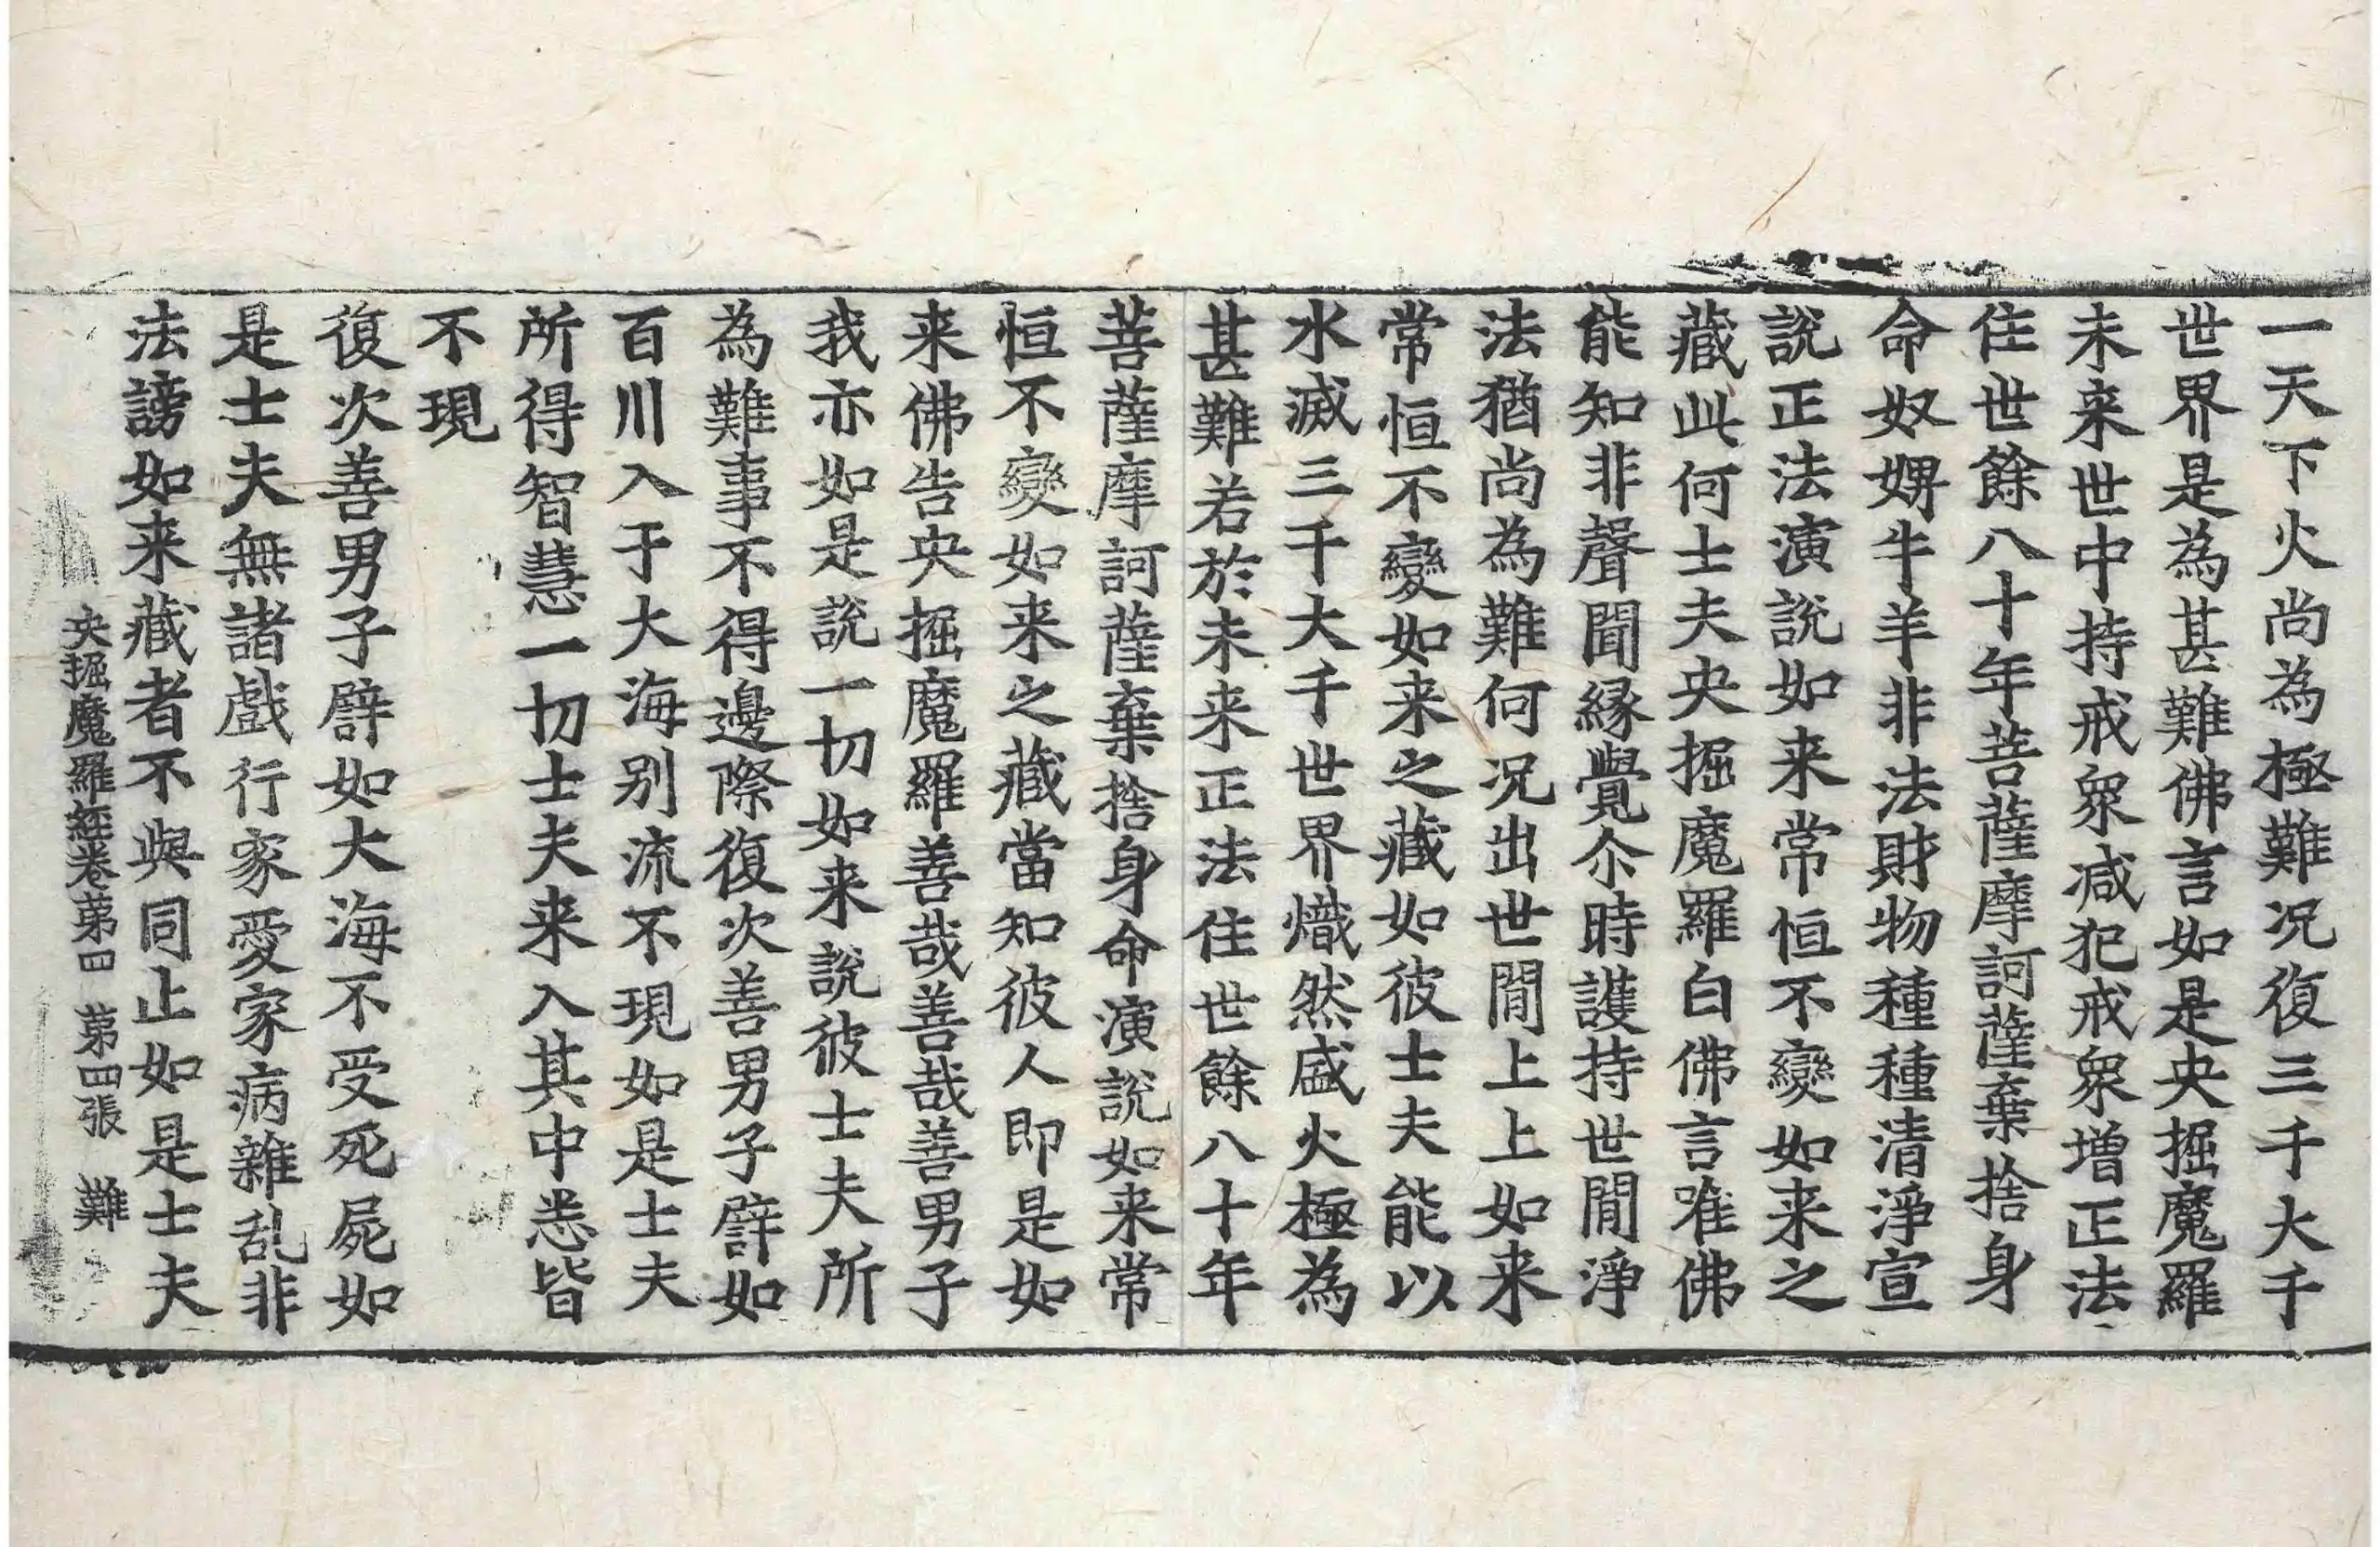 一天下火尚為極難況復三千大千
世界是為甚難佛言如是央掘魔羅
未来世中持戒衆減犯戒衆增正法
住世餘八十年菩薩摩訶薩棄捨身
命奴婢牛羊非法財物種種清淨宣
說正法演說如来常恒不變如来之
藏此何士夫央掘魔羅白佛言唯佛
能知非聲聞縁覺尒時護持世閒淨
法猶尚為難何況出世閒上上如来
常恒不變如来之藏如彼士夫能以
水滅三千大千世界熾然盛火極為
甚難若於未来正法住世餘八十年
菩薩摩訶薩棄捨身命演說如来常
恒不變如来之藏當知彼人即是如
来佛告央掘魔羅善哉善哉善男子
我亦如是說一切如来說彼士夫所
為難事不得邊際復次善男子譬如
百川入于大海别流不現如是士夫
所得智慧一切士夫来入其中悉皆
不現
復次善男子譬如大海不受死屍如
是士夫無諸戲行家愛家病雜乱非
法謗如来藏者不與同止如是士夫
央掘魔羅経卷第四 第四張 難